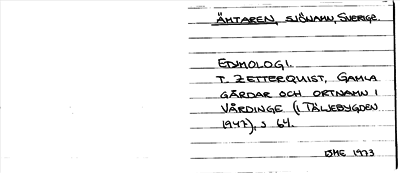 ÄMTAREN, SJÖNAMN, SVERIGE.
ETYMOLOGI.
T. ZETTERQUIST, GAMLA
GÅRDAR OCH ORTNAMN I
VÅRDINGE (I TÄLJEBYGDEN
1947), S 64.
BHE 1973